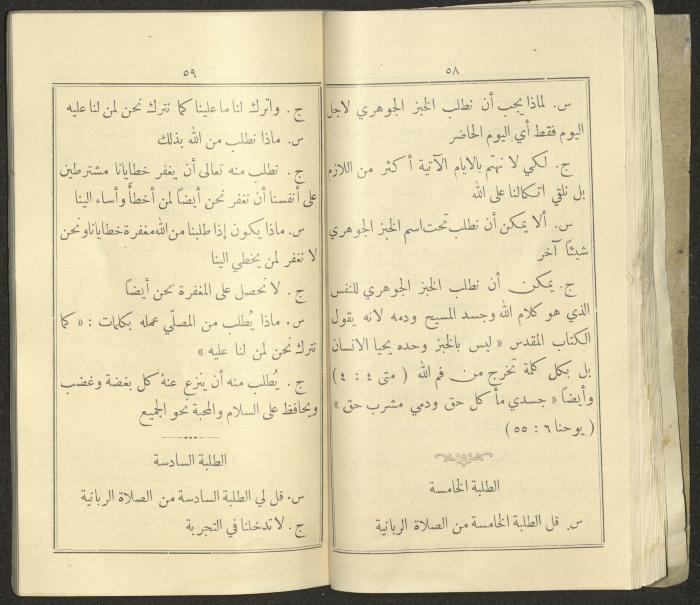 ٥٨
س. لماذا يجب أن نطلب الخبز الجوهري لاجل
اليوم فقط أي اليوم الحاضر
ج. لكي لا نهتم بالايام الآتية أكثر من اللازم
بل نلقي اتكالنا على الله
س. ألا يمكن أن نطلب تحت اسم الخبز الجوهري
شيئاً آخر
ج. يمكن أن نطلب الخبز الجوهري للنفس
الذي هو كلام الله وجسد المسيح ودمه لانه يقول
الكتاب المقدس « ليس بالخبز وحده يحيا الانسان
بل بكل كلمة تخرج من فم الله ( متى ٤ : ٤ )
وأيضاً « جسدي مأكل حق ودمي مشرب حق »
( يوحنا ٦ : ٥٥ )
الطلبة الخامسة
س. قل الطلبة الخامسة من الصلاة الربانية
٥٩
ج. واترك لنا ما علينا كما نترك نحن لمن لنا عليه
س. ماذا نطلب من الله بذلك
ج. نطلب منه تعالى أن يغفر خطايانا مشترطين
على أنفسنا أن نغفر نحن أيضاً لمن أخطأ وأساء الينا
س. ماذا يكون إذا طلبنا من الله مغفرة خطايانا ونحن
لا نغفر لمن يخطي الينا
ج. لا نحصل على المغفرة نحن أيضاً
س. ماذا يُطلب من المصلّي عمله بكلمات : « كما
نترك نحن لمن لنا عليه »
ج. يُطلب منه أن ينزع عنهُ كل بغضة وغضب
ويحافظ على السلام والمحبة نحو الجميع
الطلبة السادسة
س. قل لي الطلبة السادسة من الصلاة الربانية
ج. لا تدخلنا في التجربة